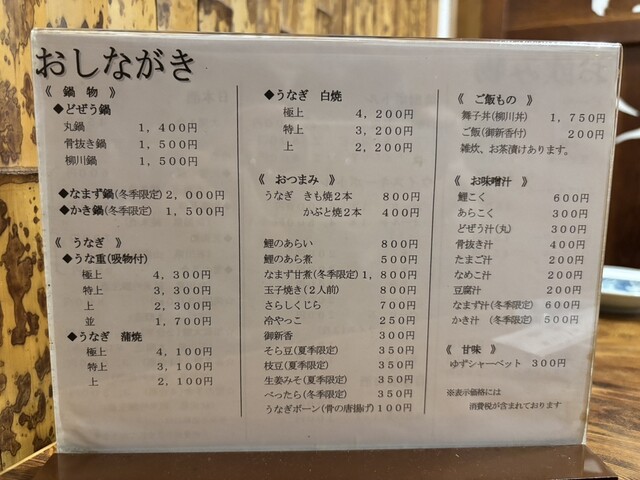 おしながき
《 鍋 物 》
◆どぜう鍋
丸鍋 1,400円
骨抜き鍋 1,500円
柳川鍋 1,500円
◆なまず鍋(冬季限定) 2,000円
◆かき鍋(冬季限定) 1,500円
《 うなぎ 》
◆うな重(吸物付)
極上 4,300円
特上 3,300円
上 2,300円
並 1,700円
◆うなぎ 蒲焼
極上 4,100円
特上 3,100円
上 2,100円
◆うなぎ 白焼
極上 4,200円
特上 3,200円
上 2,200円
《 おつまみ 》
うなぎ きも焼2本 800円
かぶと焼2本 400円
鯉のあらい 800円
鯉のあら煮 500円
なまず甘煮(冬季限定) 1,800円
玉子焼き(2人前) 800円
さらしくじら 700円
冷やっこ 250円
御新香 300円
そら豆(夏季限定) 350円
枝豆(夏季限定) 350円
生姜みそ(夏季限定) 350円
べったら(冬季限定) 350円
うなぎボーン(骨の唐揚げ) 100円
《 ご飯もの 》
舞子丼(柳川丼) 1,750円
ご飯(御新香付) 200円
雑炊、お茶漬けあります。
《 お味噌汁 》
鯉こく 600円
あらこく 300円
どぜう汁(丸) 300円
骨抜き汁 400円
たまご汁 200円
なめこ汁 200円
豆腐汁 200円
なまず汁(冬季限定) 600円
かき汁 (冬季限定) 500円
《 甘味 》
ゆずシャーベット 300円
※表示価格には
消費税が含まれております